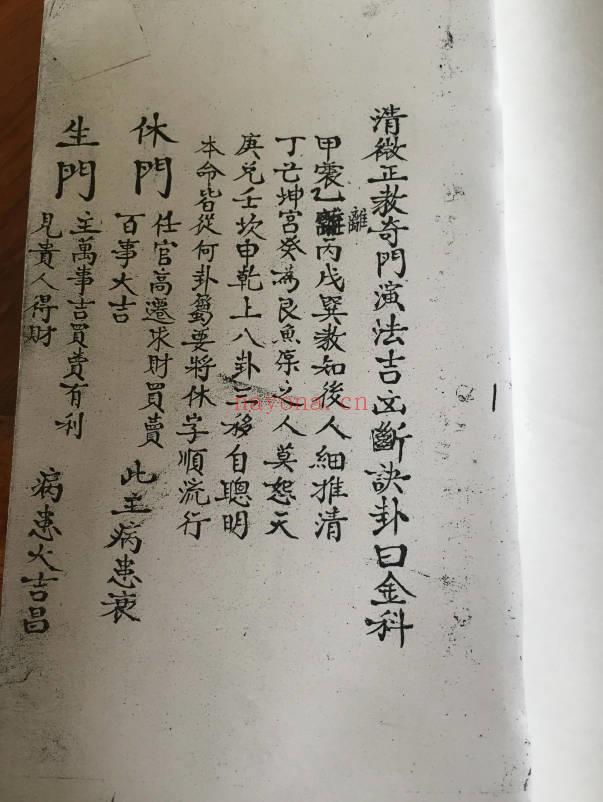 清微正教奇門演法吉凶斷訣卦曰金科
甲震乙離丙戌巽教知後人細推清
丁亡坤宮癸為艮魚深之人莫怨天
庚兑壬坎申乾上八卦一移自聰明
本命皆從何卦蜀要將休字順流行
休門
任官高遷求財買賣
百事大吉
此主病患衰
生門
主萬事吉買賣有利
見貴人得財
病患大吉昌
nayona.cn